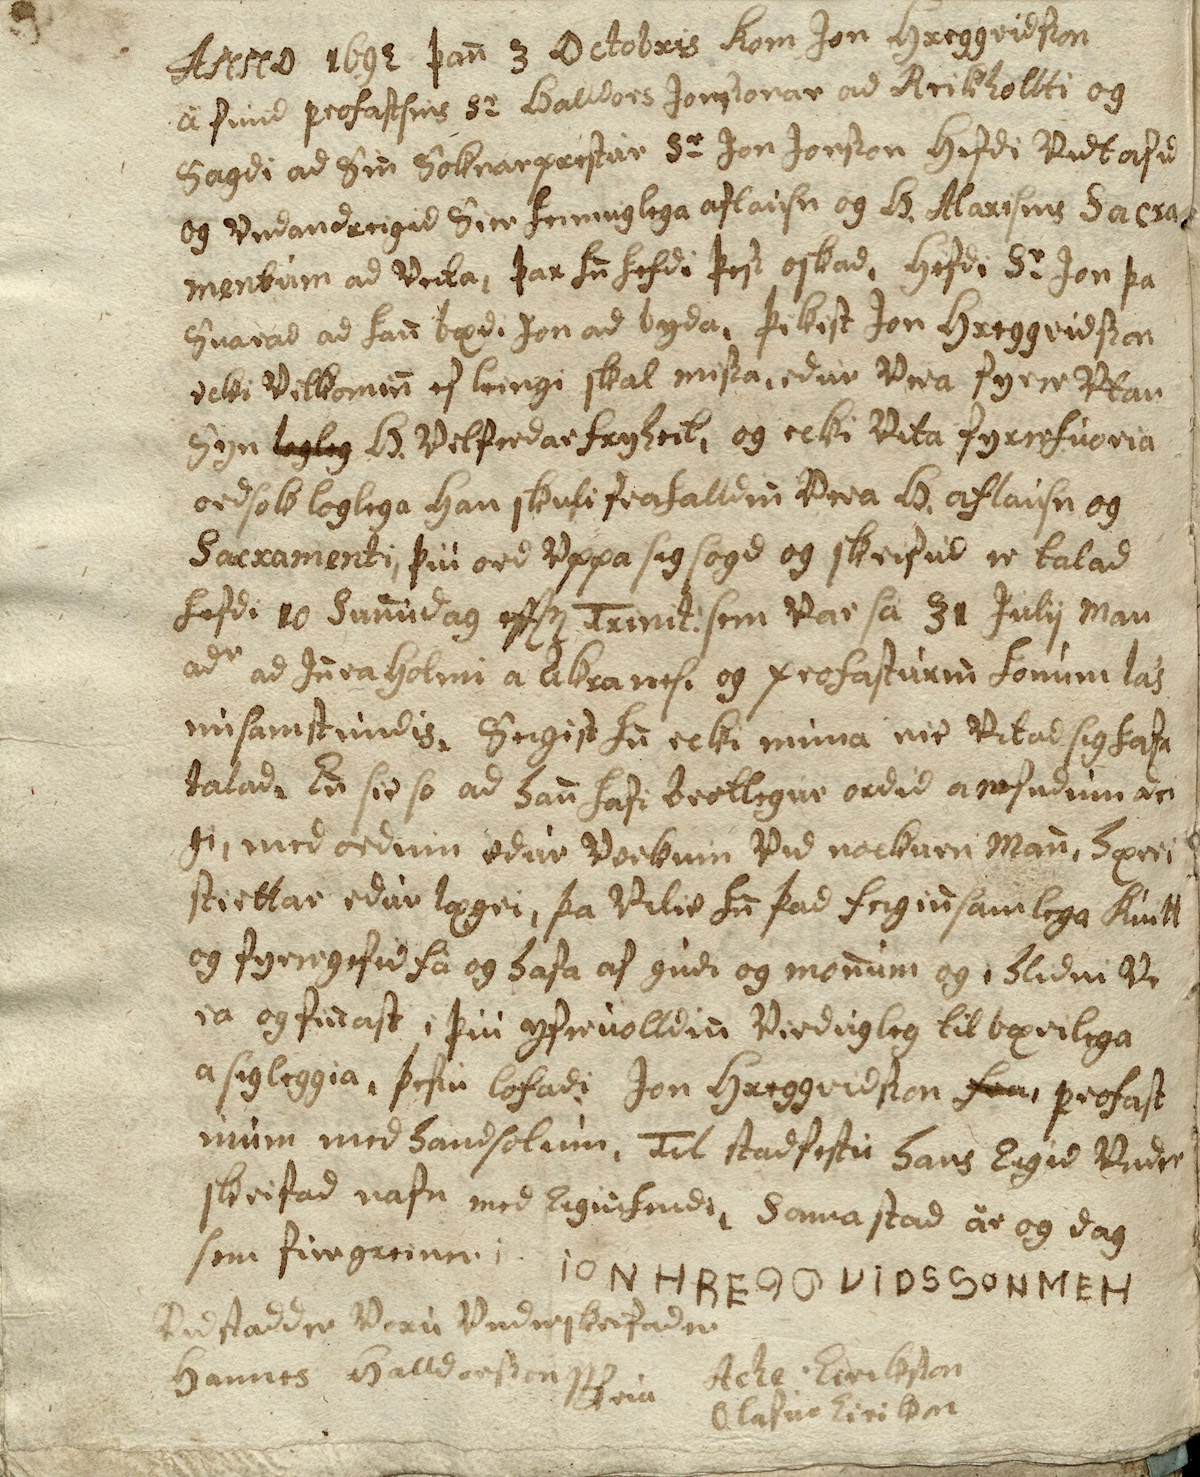 Anno 1692 þan̄ 3 Octobris kom Jon Hreggvidsson
á fund profastsins Sr Halldors Jonssonar ad Reikhollti og
Sagdi ad Sin̄ Soknarprestur Sr Jon Jonsson Hefdi Vidt afid
og undandreigid Sier heimuglega aflausn og H. Alaris Sacra
mentum ad Veita, þar hn̄ hefdi þess oskad, Hefdi Sr Jon þa
Svarad ad han̄ bædi Jon ad byda, þikist Jon Hreggvidsson
ecki Vilkomin̄ ef leingi skal missa, edur Vera fyrer Utan
Syn logleg H. Velferdar hryheit, og ecki Vita fyrer huoria
ordsok loglega Han skuli frafalldin Vera H. aflausn og
Sacramenti, þui ord Uppa sig sögd og skrifud er talad
hefdi 10 Sun̄udag eftir Trinit: sem Var sa 31 Julij Man
adr ad In̄raholmi a Akranesi og profasturin̄ honum las
nu samstundis, Seigist hn̄ ecki muna nie Vitad sig hafa
talad, En̄ sie so ad han̄ hafi brotlegur ordid a nefndum de
gi, med ordum edur Verkum Vid nockurn Man̄, hærri
stiettar edur lægri, þa Vilie hn̄ þad feigin̄samlega Kuitt
og fyrergefid fá og hafa af gudi og mon̄um og i hlidni Ve
ra og fin̄ast i þui yfirvolldin̄ Verduglega til bærilega
a sig leggia, þessu lofadi Jon Hreggvidsson profast
inum med handsolum, Til stadfestu hans Eigid Under
skrifad nafn med Eigin hendi, Sama stad ár og dag
sem fir greiner:
ION HREGGVIDSSON MEH
Vidstadder Voru Underskrifader
Hannes Halldorsson Acke Eiriksson
Olafur Eiriksson